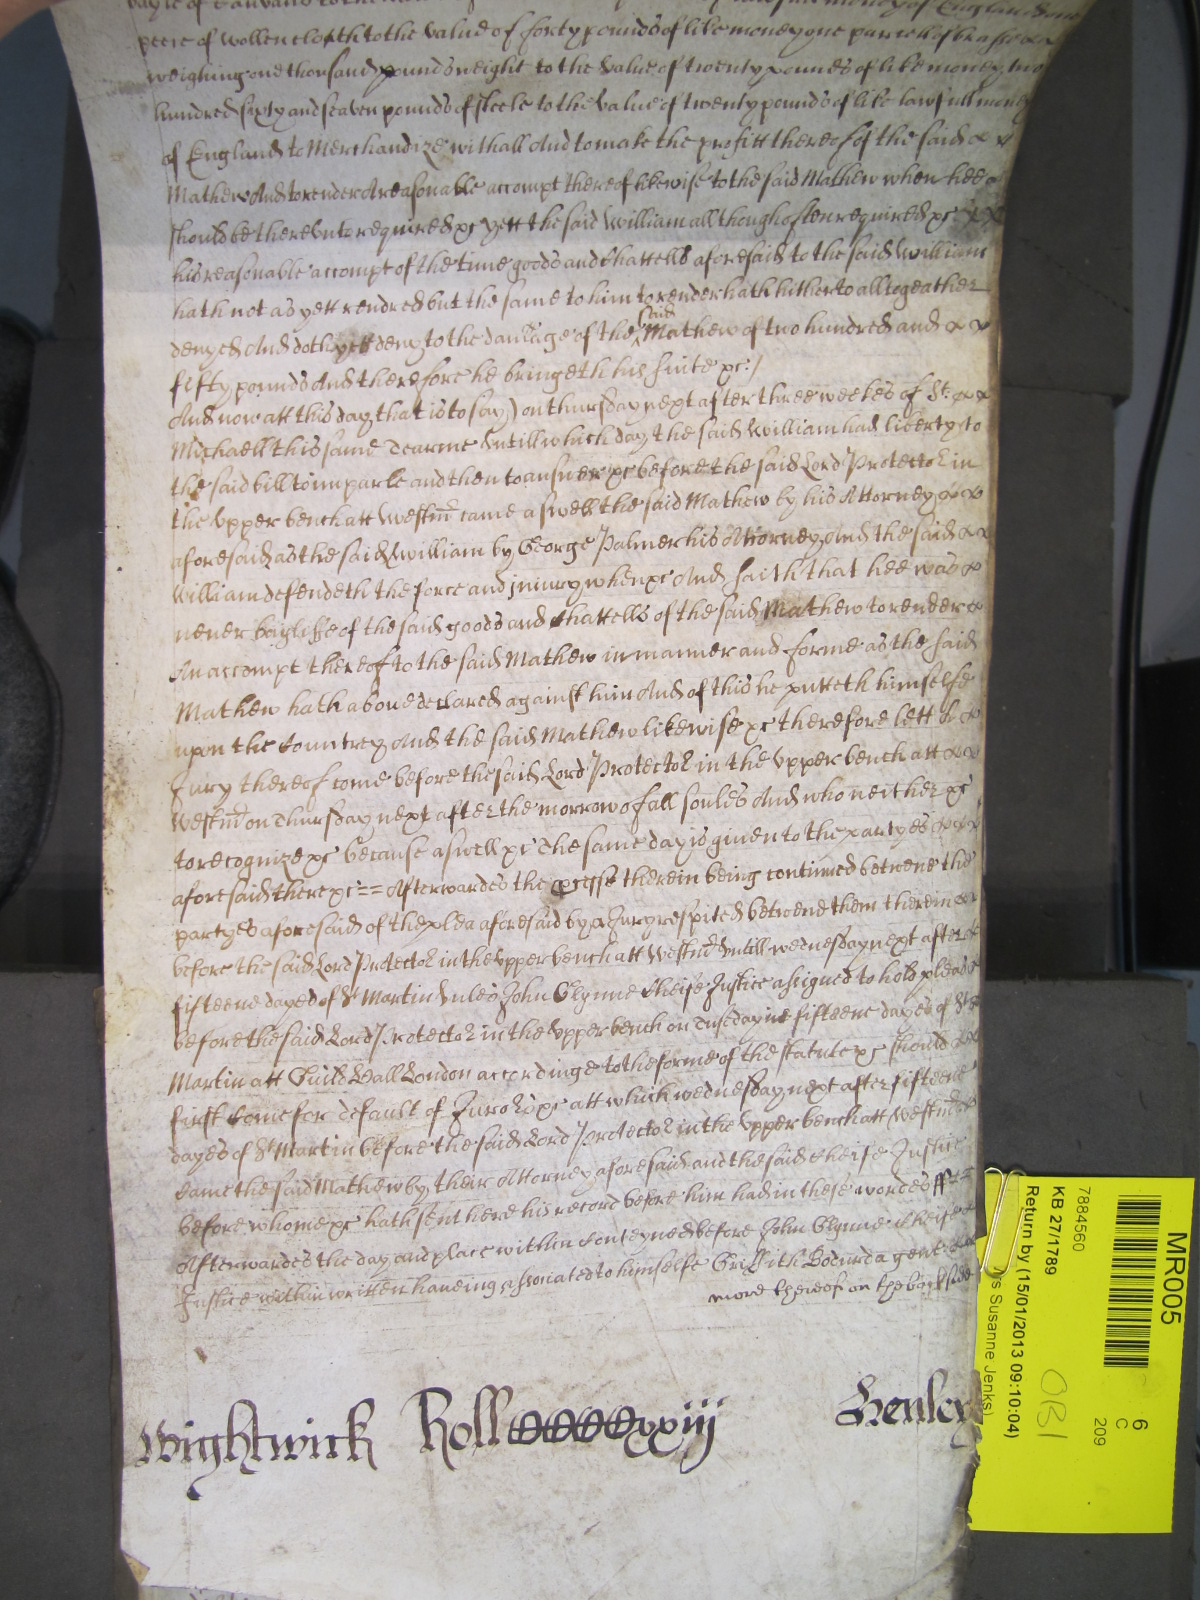 peece of wollen cloath to the value of forty pounds of like money one parcell of brasse
weighing one thousand pounds weight to the value of twenty poundes of like money two
hundred sixty and seaven pounds of steele to the value of twenty pounds of like lawfull money
of England to Merchandize withall And to make the profitt thereof of the said
Mathew And to render A reasonable accompt thereof likewise to the said Mathew when hee
should be therevnto required &c yett the said William allthough often required &c
his reasonable accompt of the time goods and Chattells aforesaid to the said William
hath not as yett rendred but the same to him to render hath hitherto alltogeather
denyed And doth yett deny to the damage of the said Mathew of two hundred and
fifty pounds And therefore he bringeth his suite &c:/
And now att this day that is to say) on thursday next after three weekes of St.
Michaell this same Tearme Vntill which day the said William had liberty to
the said bill to imparle and then to answer &c before the said Lord Protector in
the Vpper bench att Westmr came aswell the said Mathew by his Attorney
aforesaid as the said William by George Palmer his Attorney And the said
William defendeth the force and iniury when &c And saith that hee was
never bayliffe of the said goods and Chattells of the said Mathew to render
An accompt thereof to the said Mathew in manner and forme as the said
Mathew hath aboue declared against him And of this he putteth himselfe
upon the Countrey And the said Mathew likewise &c therefore lett A
Jury thereof come before the said Lord Protector in the Vpper bench att
Westmr on Thursday next after the morrow of all soules And who neither &c
to recognize &c because aswell &c The same day is giuen to the partyes
aforesaid there &c == Afterwardes the processe therein being continued betwene the
partyes aforesaid of the plea aforesaid by a Jury respited betweene them therein
before the said Lord Protector in the Vpper bench att Westmr Vntill wednesday next after
fifteene dayes of St Martin Vnles John Glynne Cheife Justice assigned to hold pleas
before the said Lord Protector in the Vpper bench on Tuesday fifteene dayes of St
Martin att Guild Hall London accordinge to the forme of the statute &c should
first Come for default of Jurors &c att which wednesday next after fifteene
dayes of St Martin before the said Lord Protector in the Vpper bench att Westmr
Came the said Mathew by their Attorney aforesaid and the said Cheife Justice
before whome &c hath sent here his record before him had in these wordes ss
Afterwardes the day and place within Conteyned before John Glynne Cheife
Justice within written haueing associated to himselfe Griffith Bodurda gent
more thereof on the backside
Wightwick Roll CCCCxxiij Henley
MR005
6
C
209
7884560
KB 27/1789
Return by (15/01/2013 09:10:04)
Susanne Jenks)
OB1